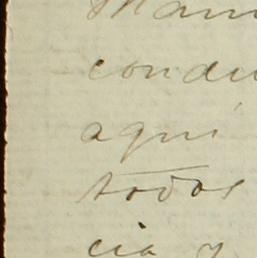 Man
condu
aqui
todos
cia y